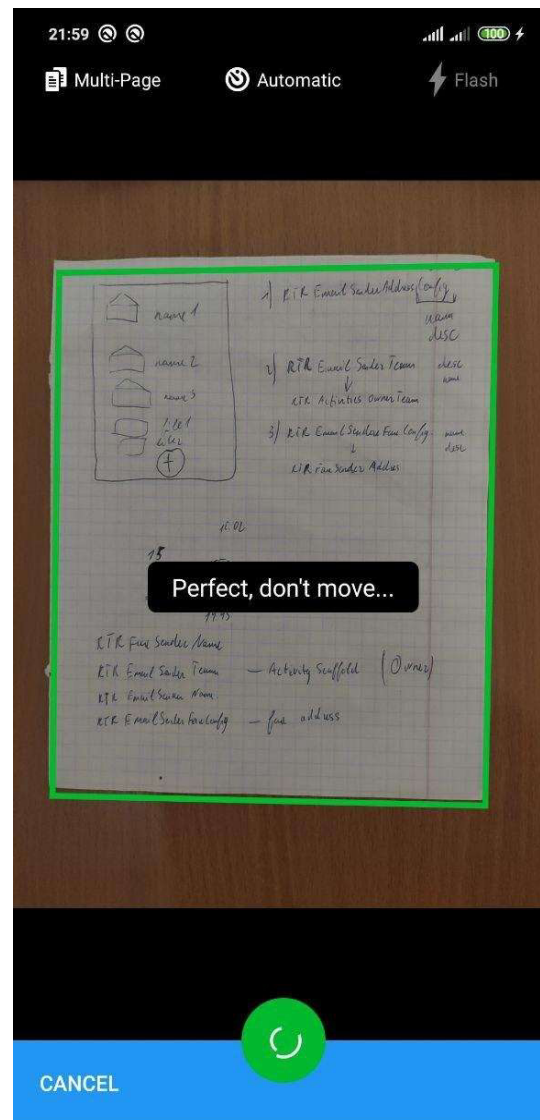 21:59 100
Multi-Page Automatic Flash
name 1
name 2
name 3
+
1) RTR Email Sender Address Config
name
desc
2) RTR Email Sender Team desc
name
RTR Activities Owner Team
3) RTR Email Senders Fax Config name
desc
RTR Fax Sender Address
15
Perfect, don't move...
19.45
RTR Fax Sender Name
RTR Email Sender Team — Activity Scaffold (Owner)
RTR Email Name
RTR Email Sender Fax Config — fax address
CANCEL